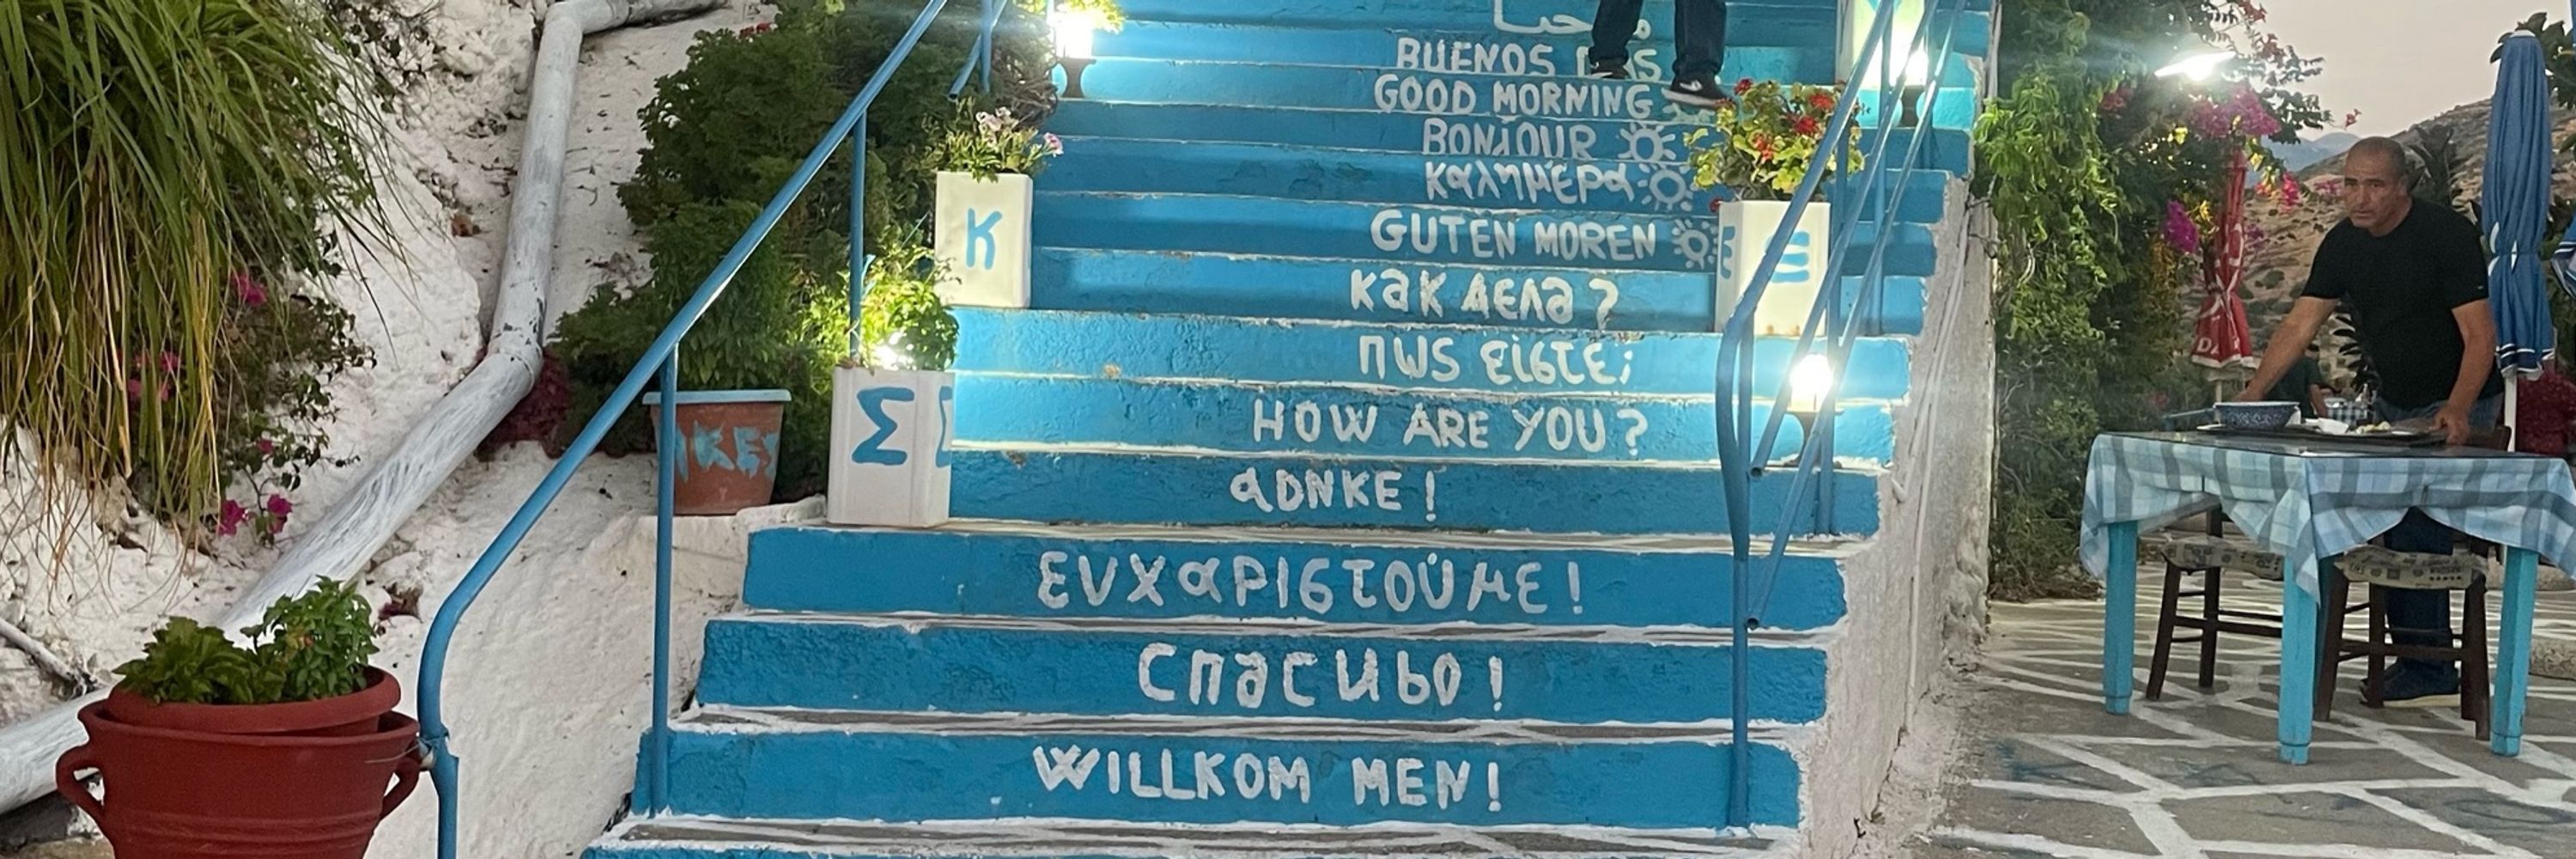 مرحبا
BUENOS
GOOD MORNING
BONJOUR
Καλημέρα
GUTEN MOREN
КАК ДЕЛА?
πως είστε;
HOW ARE YOU?
αDNKE!
ΕΥΧαΡΙΣΤΟύΜΕ!
СПАСИЬО!
WILLKOM MEN!
K
Σ
Ξ